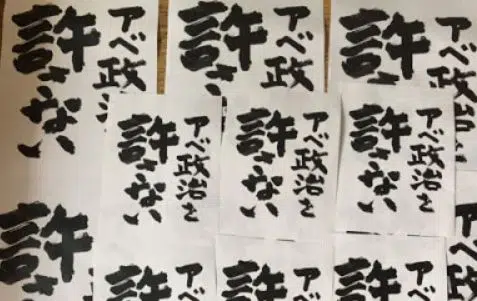 アベ政治
許さない
アベ政
許さ
アベ政治を
許さ
アベ政治を
許さない
アベ政治を
許さない
アベ政治を
許さない
許さ
アベ政
許さ
アベ
許さ
アベ
許さ
ベ政